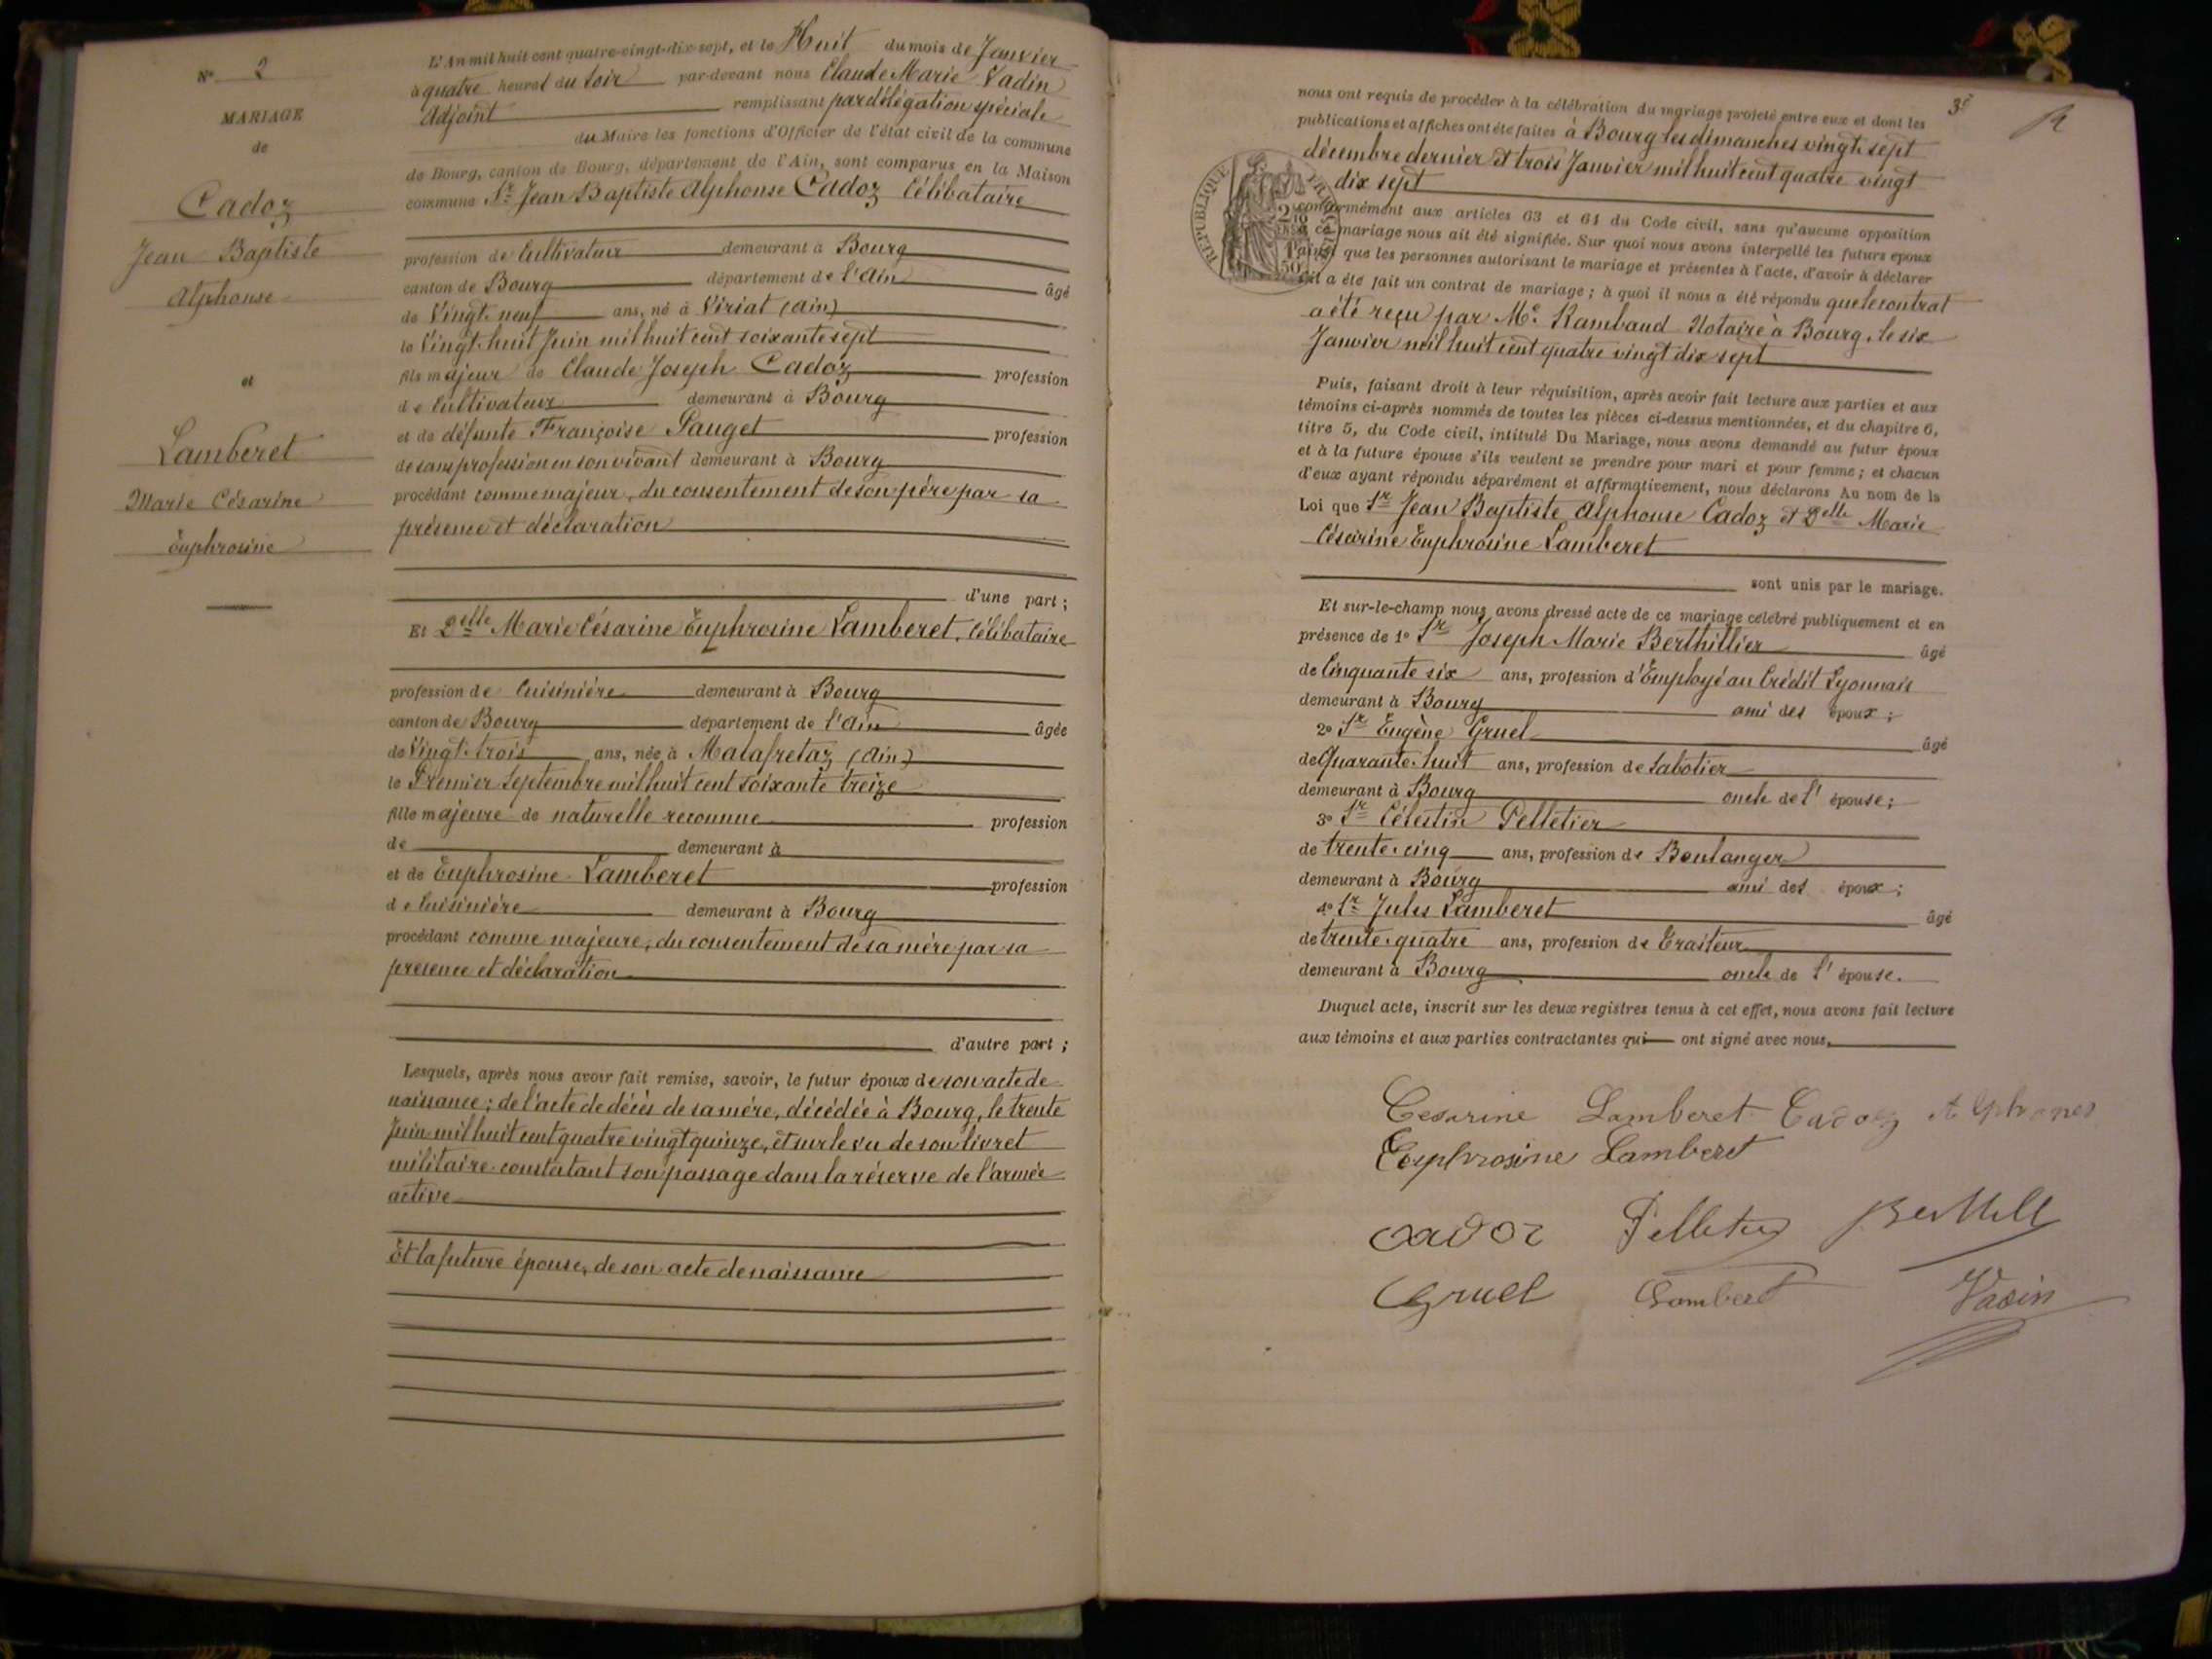 N° 2
MARIAGE
de
Cadoz
Jean Baptiste
Alphonse
et
Lamberet
Marie Césarine
Euphrosine
L'An mil huit cent quatre-vingt-dix-sept, et le Huit du mois de Janvier
à quatre heures du soir par-devant nous Claude Marie Vadin
Adjoint remplissant par délégation spéciale
du Maire les fonctions d'Officier de l'état civil de la commune
de Bourg, canton de Bourg, département de l'Ain, sont comparus en la Maison
commune Sr Jean Baptiste Alphonse Cadoz Célibataire
profession de Cultivateur demeurant à Bourg
canton de Bourg département de l'Ain âgé
de Vingt-neuf ans, né à Viriat (Ain)
le Vingt-huit Juin mil huit cent soixante sept
fils majeur de Claude Joseph Cadoz profession
de Cultivateur demeurant à Bourg
et de défunte Françoise Pauget profession
de sans profession en son vivant demeurant à Bourg
procédant comme majeur, du consentement de son père par sa
présence et déclaration
d'une part ;
Et Delle Marie Césarine Euphrosine Lamberet, Célibataire
profession de Cuisinière demeurant à Bourg
canton de Bourg département de l'Ain âgée
de Vingt-trois ans, née à Malafretaz (Ain)
le Premier Septembre mil huit cent soixante treize
fille majeure de naturelle reconnue profession
de demeurant à
et de Euphrosine Lamberet profession
de Cuisinière demeurant à Bourg
procédant comme majeure, du consentement de sa mère par sa
présence et déclaration
d'autre part ;
Lesquels, après nous avoir fait remise, savoir, le futur époux de son acte de
naissance ; de l'acte de décès de sa mère, décédée à Bourg, le trente
Juin mil huit cent quatre vingt quinze, et sur le vu de son livret
militaire constatant son passage dans la réserve de l'armée
active
Et la future épouse, de son acte de naissance
3e
nous ont requis de procéder à la célébration du mariage projeté entre eux et dont les
publications et affiches ont été faites à Bourg les dimanches vingt-sept
décembre dernier et trois Janvier mil huit cent quatre vingt
dix sept
RÉPUBLIQUE
conformément aux articles 63 et 64 du Code civil, sans qu'aucune opposition
à ce mariage nous ait été signifiée. Sur quoi nous avons interpellé les futurs époux
ainsi que les personnes autorisant le mariage et présentes à l'acte, d'avoir à déclarer
s'il a été fait un contrat de mariage ; à quoi il nous a été répondu que le contrat
a été reçu par Me Rambaud Notaire à Bourg, le six
Janvier mil huit cent quatre vingt dix sept
Puis, faisant droit à leur réquisition, après avoir fait lecture aux parties et aux
témoins ci-après nommés de toutes les pièces ci-dessus mentionnées, et du chapitre 6,
titre 5, du Code civil, intitulé Du Mariage, nous avons demandé au futur époux
et à la future épouse s'ils veulent se prendre pour mari et pour femme ; et chacun
d'eux ayant répondu séparément et affirmativement, nous déclarons Au nom de la
Loi que Sr Jean Baptiste Alphonse Cadoz et Delle Marie
Césarine Euphrosine Lamberet
sont unis par le mariage.
Et sur-le-champ nous avons dressé acte de ce mariage célébré publiquement et en
présence de 1° Sr Joseph Marie Berthillier âgé
de Cinquante six ans, profession d'Employé au Crédit Lyonnais
demeurant à Bourg ami des époux ;
2° Sr Eugène Gruel âgé
de Quarante-huit ans, profession de Sabotier
demeurant à Bourg oncle de l'épouse ;
3° Sr Célestin Pelletier
de trente-cinq ans, profession de Boulanger
demeurant à Bourg ami des époux ;
4° Sr Jules Lamberet âgé
de trente-quatre ans, profession de Traiteur
demeurant à Bourg oncle de l'épouse.
Duquel acte, inscrit sur les deux registres tenus à cet effet, nous avons fait lecture
aux témoins et aux parties contractantes qui ont signé avec nous.
Cesarine Lamberet Cadoz Alphonse
Euphrosine Lamberet
Cadoz Pelletier Berthill
Gruel Lamberet Vadin